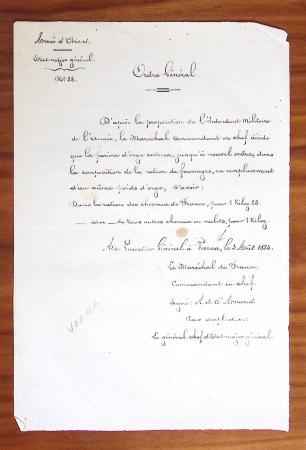 Armée d'Orient.
Etat-major général.
Ordre Général.
D'après la proposition de l'Intendant Militaire
de l'armée, le Maréchal Commandant en chef décide
que la farine d'orge entrera, jusqu'à nouvel ordre, dans
la composition de la ration de fourrages, en remplacement
d'un même poids d'orge, savoir:
Dans la ration des chevaux de France, pour 1 Kilog 25.
— dre — de tous autres chevaux ou mulets, pour 1 Kilog.
Au Quartier Général à Varna, le 3 Août 1854.
Le Maréchal de France,
Commandant en chef.
Signé: A. de St Arnaud
Pour ampliation:
Le général chef d'Etat-major général.
VARNA